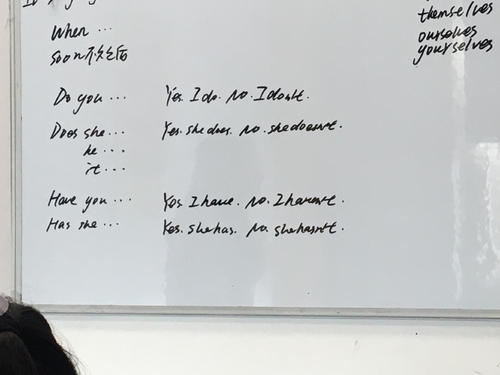 When ...
soon 不久之后
Do you ... Yes. I do. No. I don't.
Does she ... Yes. she does. No. she doesn't.
he ...
it ...
Have you ... Yes I have. No. I haven't.
Has she ... Yes. she has. No. she hasn't.
themselves
ourselves
yourselves